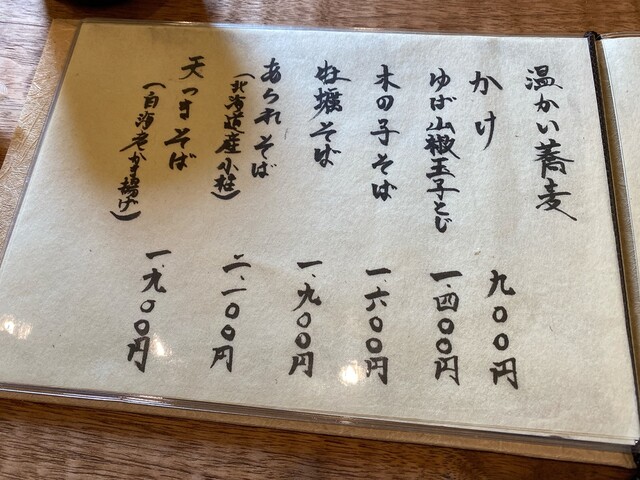 温かい蕎麦
かけ 九〇〇円
ゆば山椒玉子とじ 一.四〇〇円
木の子そば 一.六〇〇円
牡蠣そば 一.九〇〇円
あられそば
(北海道産小柱) 二.一〇〇円
天つきそば
(白海老かき揚げ) 一.九〇〇円